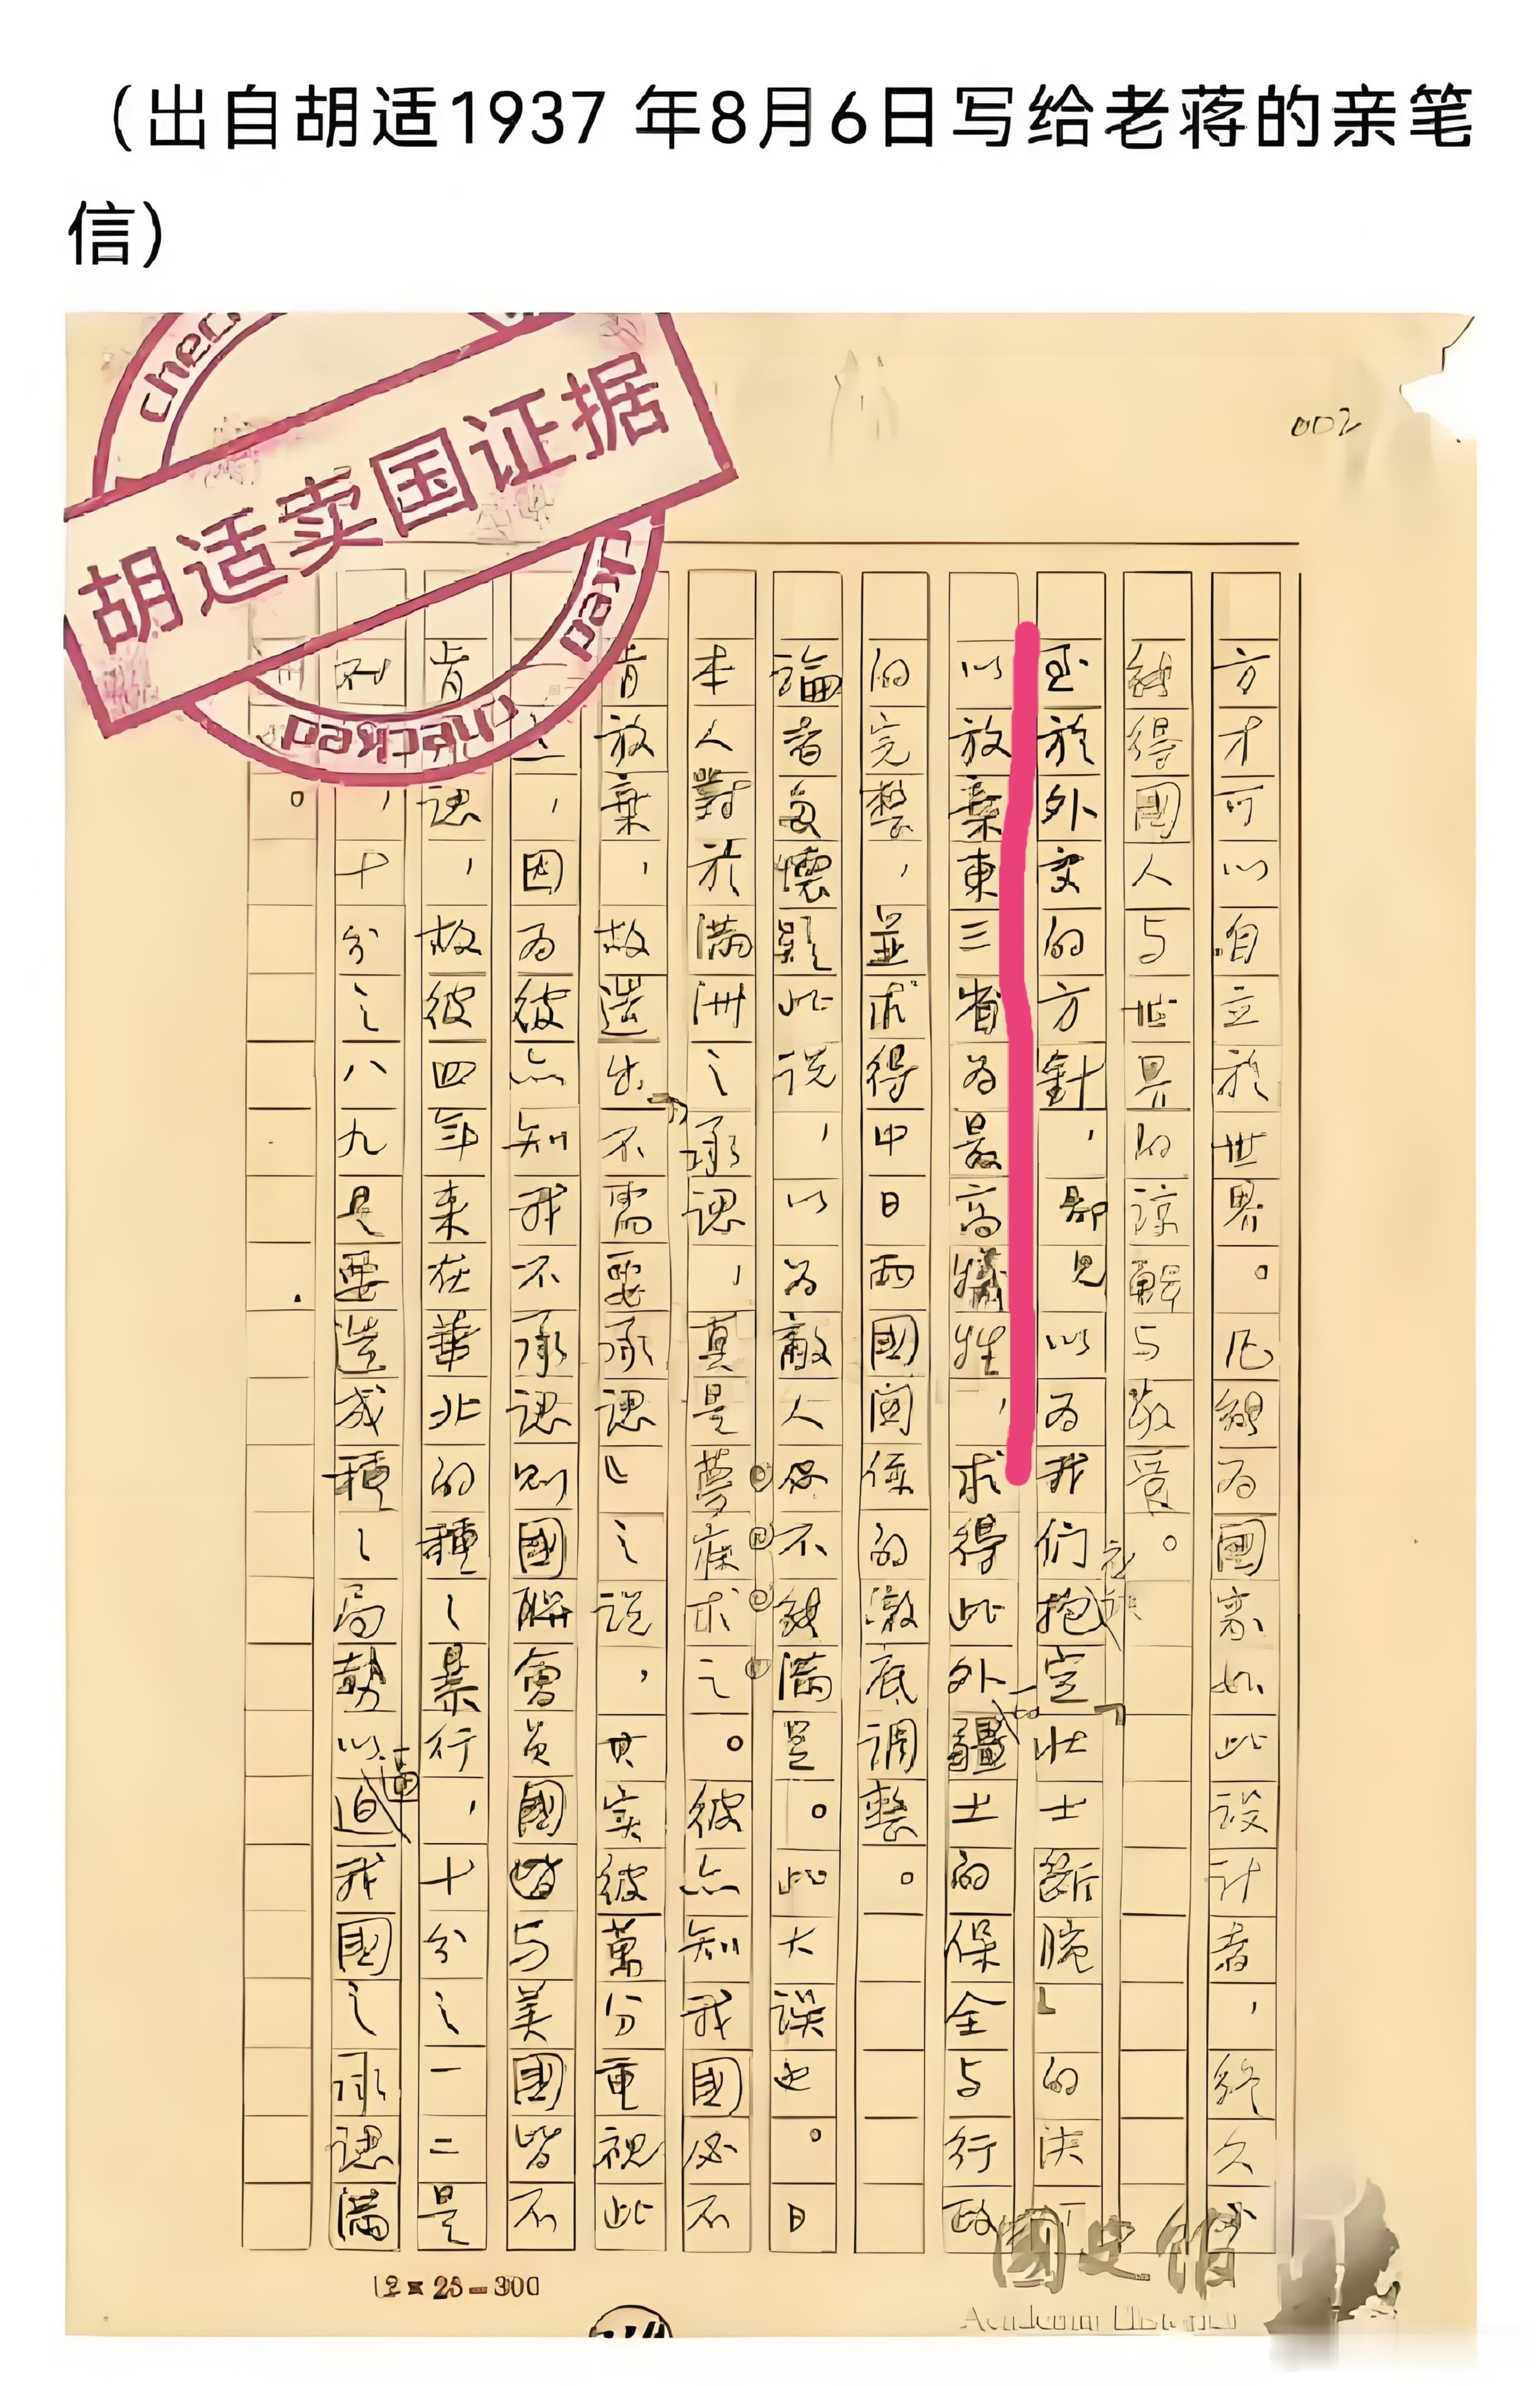 （出自胡适1937 年8月6日写给老蒋的亲笔
信）
002
胡适卖国证据
checked
checked
方才可以自立於世界。凡能為國家如此設計者，終久必
能得國人与世界的諒解与敬愛。
至於外交的方針，鄙見以為我們應該抱定「壯士斷腕」的決
以放棄東三省為最高犧牲，求得此外一切疆土的保全与行政
的完整，並求得中日兩國關係的徹底調整。
論者多懷疑此説，以為敵人必不能滿足。此大誤也。日
本人對於滿洲之承認，真是夢寐求之。彼亦知我國必不
肯放棄，故造出「不需要承認」之説，其实彼萬分重視此
一点，因為彼亦知我不承認則國聯會員國皆与美國皆不
肯承認，故彼四年来在華北的種種暴行，十分之一二是
對，十分之八九是要造成種種局勢以逼我國之承認滿
洲。
12×25=300
國史館
Academia Historica